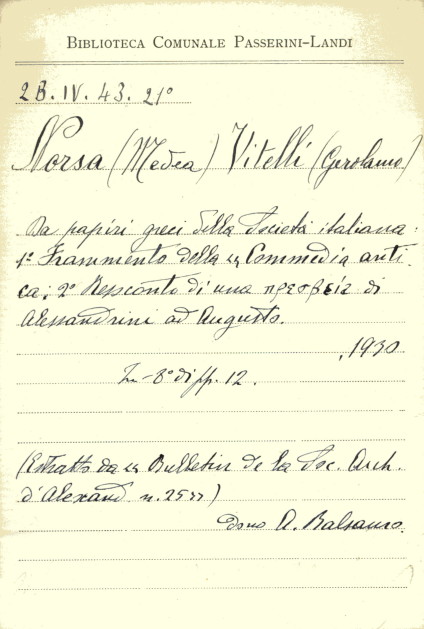 BIBLIOTECA COMUNALE PASSERINI-LANDI
2B.IV.43.21°
Norsa (Medea) Vitelli (Gerolamo)
Da papiri greci della Società italiana:
1° Frammento della « Commedia anti-
ca; 2° Resconto di una πρεσβεία di
Alessandrini ad Augusto.
,1930
In-8° di pp. 12.
(Estratto da « Bulletin de la Soc. Arch.
d'Alexand. n. 25 »)
dono A. Balsamo.